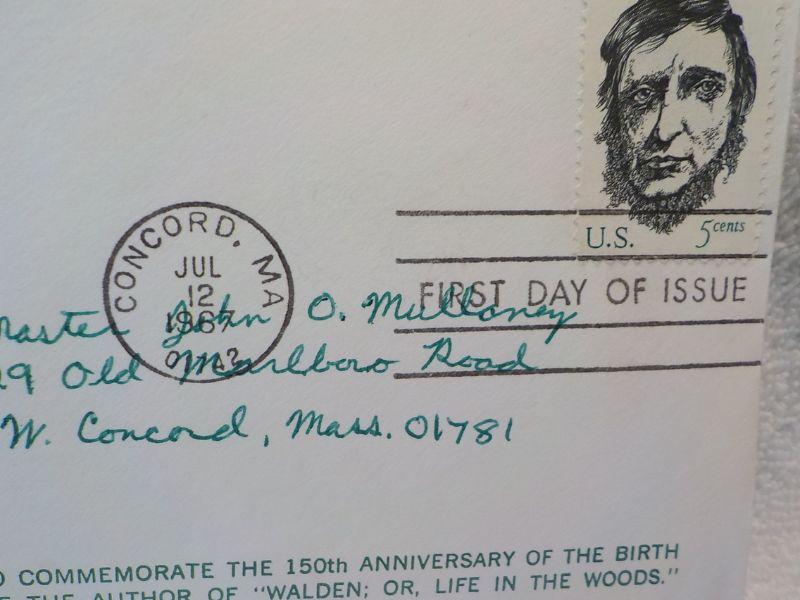 U.S. 5 cents
CONCORD, MA
JUL
12
1967
FIRST DAY OF ISSUE
John O. Mullaney
Old Marlboro Road
W. Concord, Mass. 01781
COMMEMORATE THE 150th ANNIVERSARY OF THE BIRTH
THE AUTHOR OF "WALDEN; OR, LIFE IN THE WOODS."